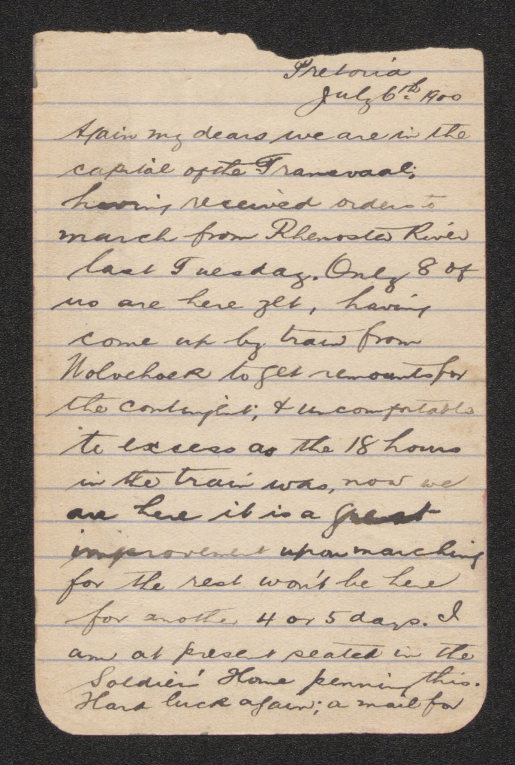 Pretoria
July 6th 1900
Again my dears we are in the
capital of the Transvaal;
having received orders to
march from Rhenoster River
last Tuesday. Only 8 of
us are here yet, having
come up by train from
Wolvehoek to get remounts for
the contingt; & uncomfortable
to excess as the 18 hours
in the train was, now we
are here it is a great
improvement upon marching
for the rest won't be here
for another 4 or 5 days. I
am at present seated in the
Soldiers' Home penning this.
Hard luck again; a mail for